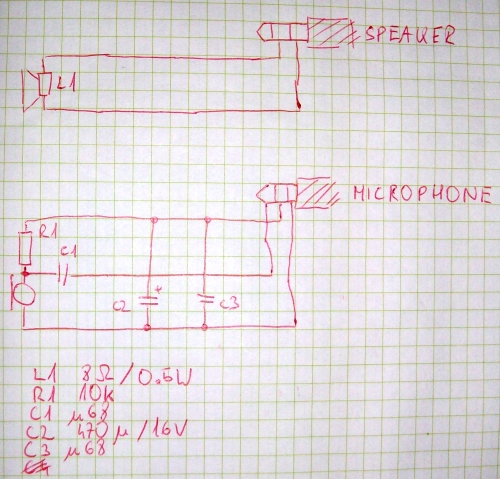 SPEAKER
L1
MICROPHONE
R1
C1
C2 +
C3
L1 8Ω/0.5W
R1 10K
C1 µ68
C2 470µ/16V
C3 µ68